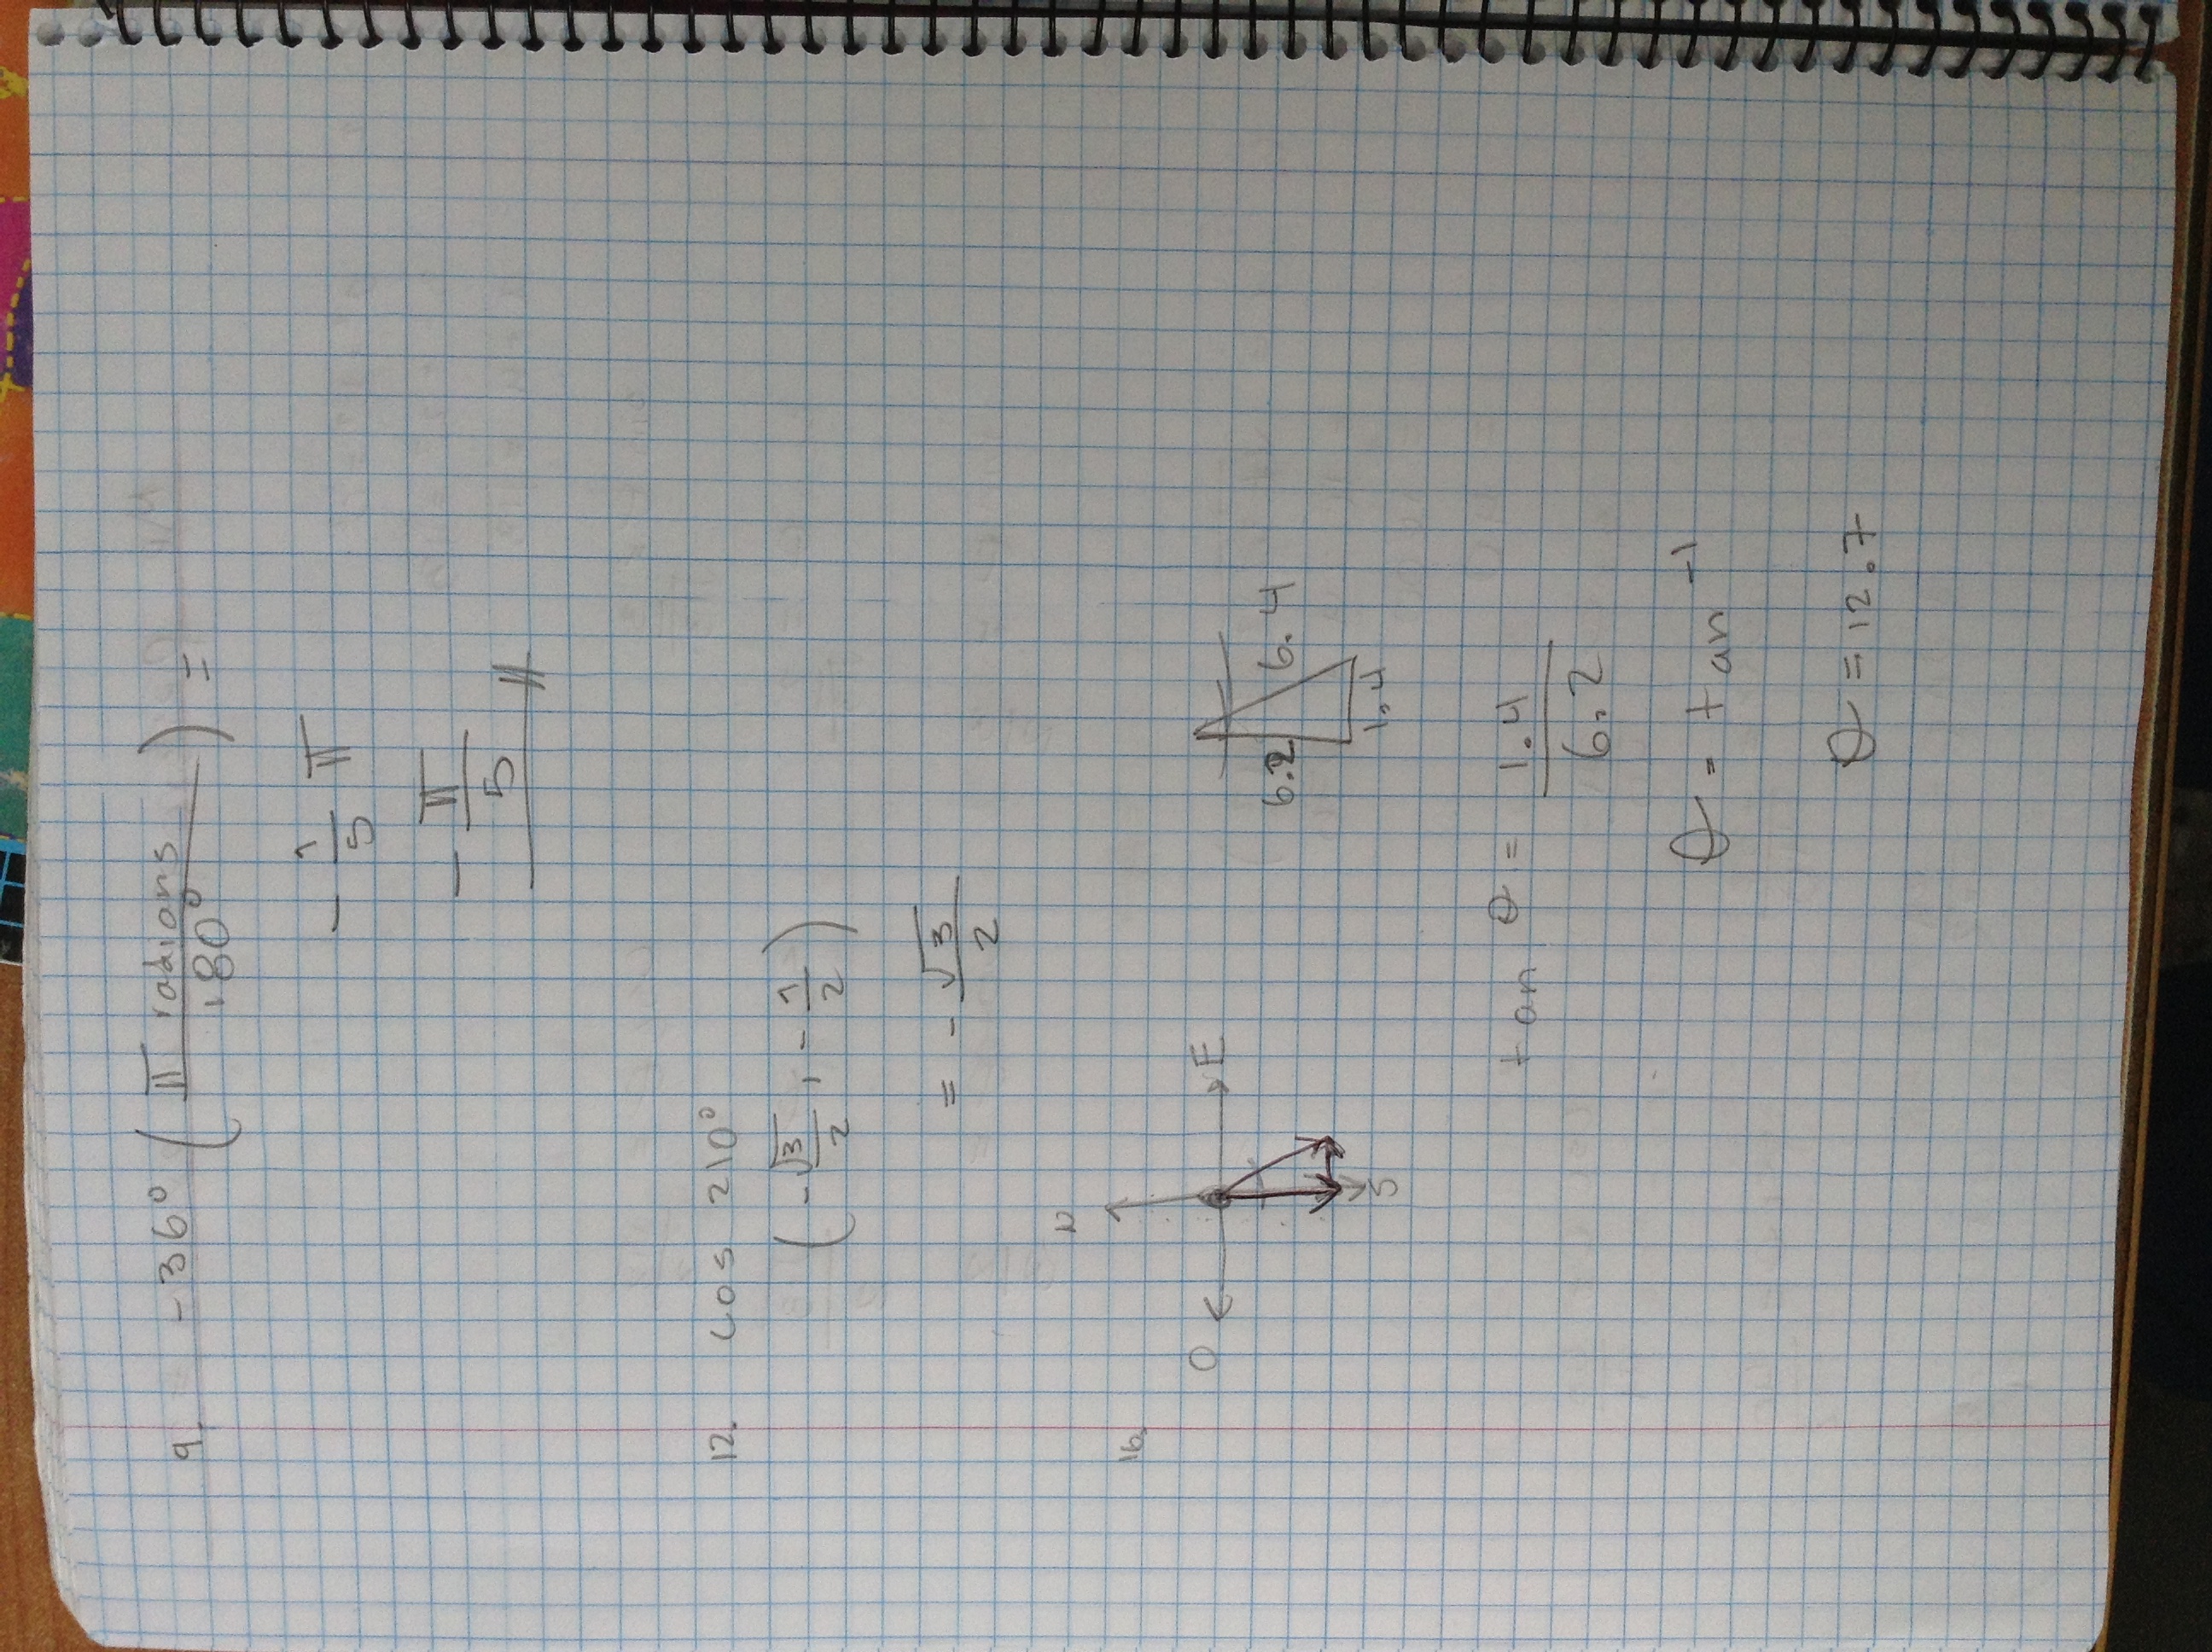 9. -36° ( π radians / 180° ) =
- 1/5 π
- π/5 //
12. cos 210°
( -√3/2 , - 1/2 )
= - √3/2
16.
N
O E
S
6.2 6.4
1.4
tan θ = 1.4 / 6.2
θ = tan⁻¹
θ = 12.7